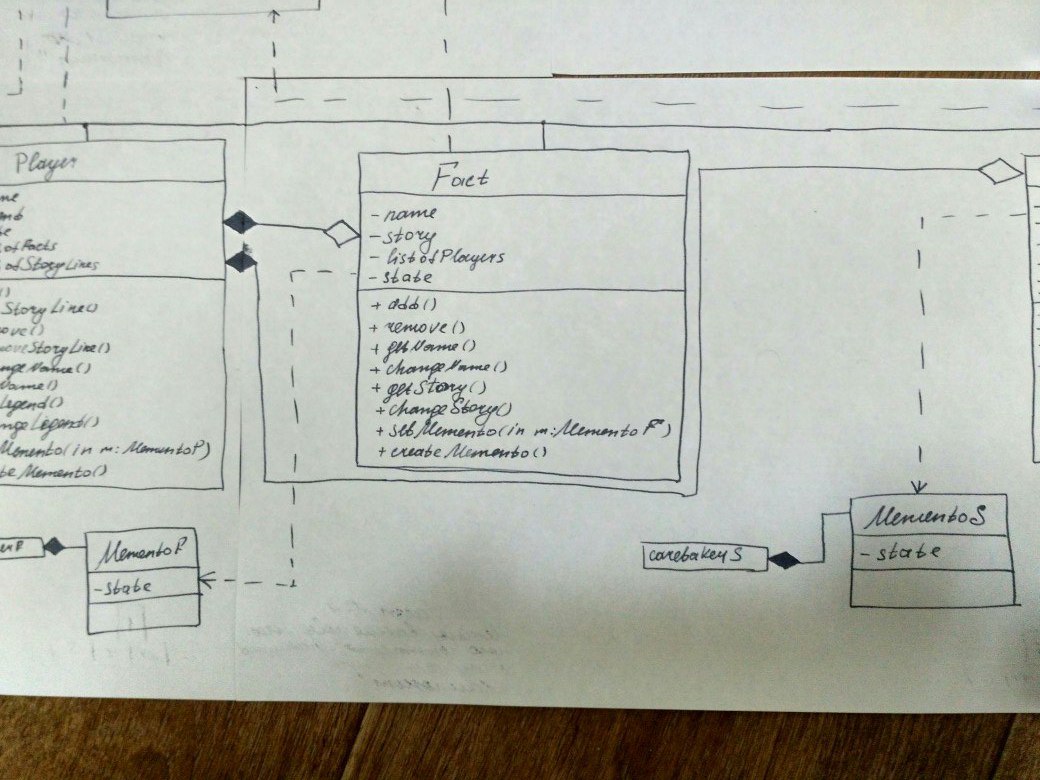 Player
me
te
of Facts
of StoryLines
()
StoryLine()
ove()
moveStoryLine()
ngeName()
Name()
Legend()
ngeLegend()
Memento(in m: MementoP)
te Memento()
MementoP
-state
Fact
-name
-story
-list of Players
-state
+add()
+remove()
+getName()
+changeName()
+getStory()
+changeStory()
+setMemento(in m: Memento F)
+createMemento()
caretakeyS
MementoS
-state